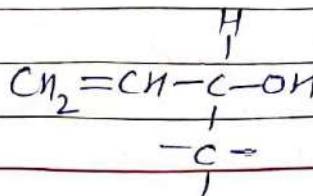 H
CH₂=CH-C-OH
-C-